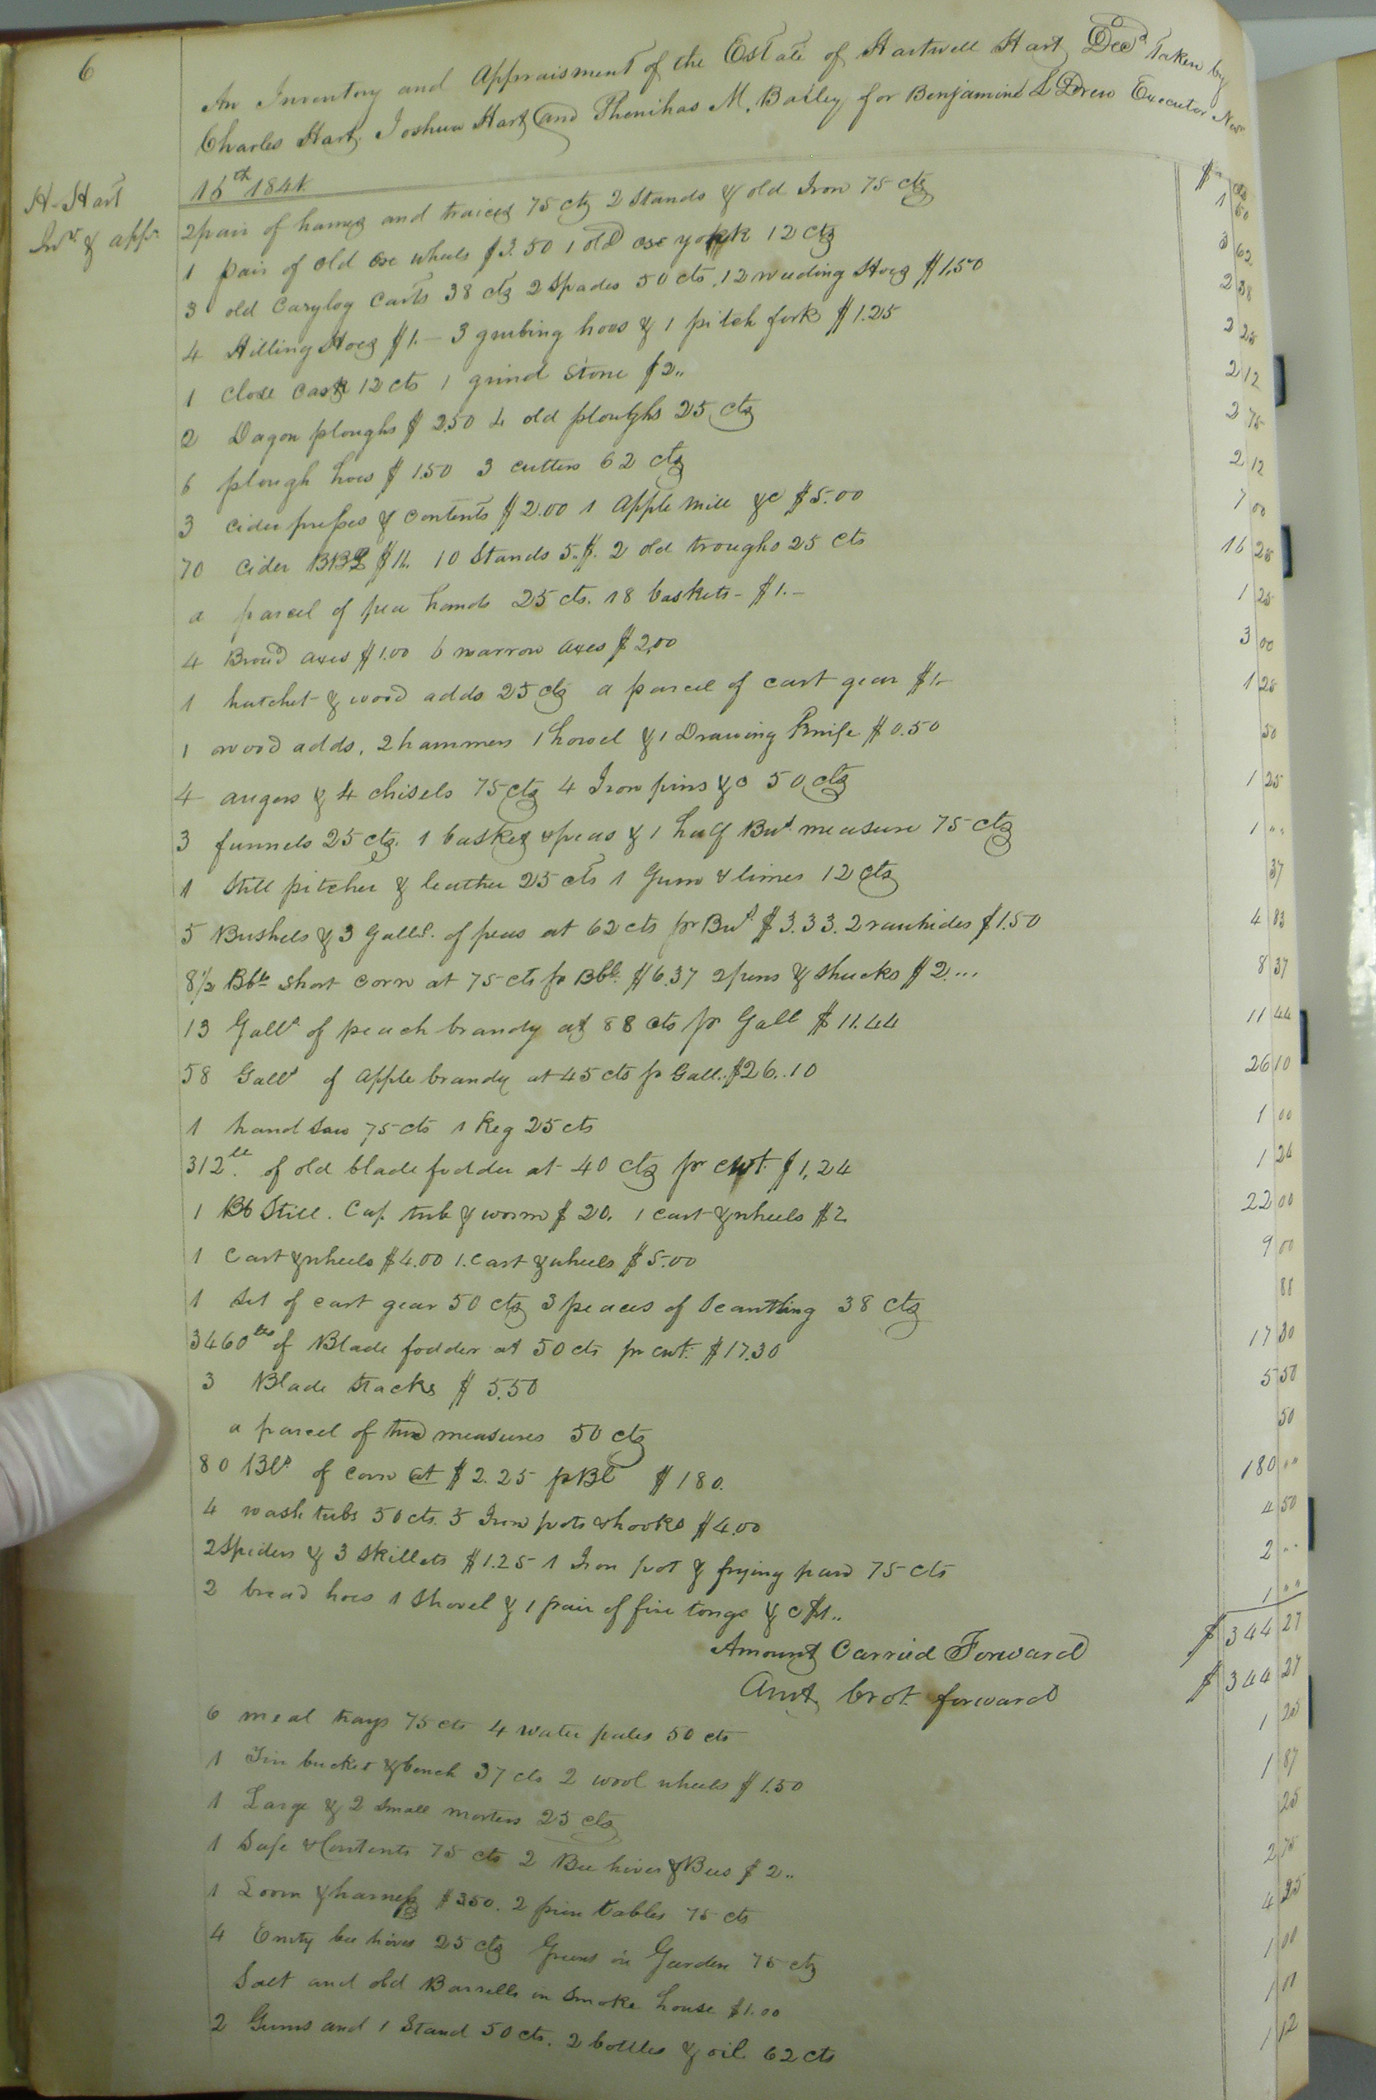 6
An Inventory and Appraisment of the Estate of Hartwell Hart Decd Taken by
Charles Hart, Joshua Hart and Phenihas M. Bailey for Benjamine L Drew Executor Novr
16th 1841
H. Hart
Invt & appr
$ cts
2 pair of hames and traices 75 cts 2 Stands & old Iron 75 cts 1 50
1 pair of old oxe wheels $3.50 1 old oxe yoek 12 cts 3 62
3 old Carylog Carts 38 cts 2 Spades 50 cts, 12 weeding Hoes $1.50 2 38
4 Hilling Hoes $1.- 3 grubing hoos & 1 pitch fork $1.25 2 25
1 Close Cask 12 cts 1 grind Stone $2,, 2 12
2 Dagon ploughs $2.50 4 old ploughs 25 cts 2 75
6 plough hoes $1.50 3 cutters 62 cts 2 12
3 Cider presses & contents $2.00 1 Apple mill &c $5.00 7 00
70 Cider BBls $11. 10 Stands 5.$. 2 old troughs 25 cts 16 25
a parcel of pea hands 25 cts. 18 baskets - $1.- 1 25
4 Broad axes $1.00 6 narrow axes $2.00 3 00
1 hatchet & wood adds 25 cts a parcel of cart gear $1- 1 25
1 wood adds, 2 hammers 1 howel & 1 Drawing Knife $0.50 50
4 augers & 4 chisels 75 cts 4 Iron pins &c 50 cts 1 25
3 funnels 25 cts. 1 basket & peas & 1 half Bus measure 75 cts 1 ,,
1 Still pitcher & leather 25 cts 1 Gum & limes 12 cts 37
5 Bushels & 3 Galls. of peas at 62 cts pr Bus. $3.33. 2 rawhides $1.50 4 83
8 1/2 Bbls Short corn at 75 cts pr Bbl. $6.37 2 pens & shucks $2... 8 37
13 Galls of peach brandy at 88 cts pr Gall $11.44 11 44
58 Galls of Apple brandy at 45 cts pr Gall. $26.10 26 10
1 hand saw 75 cts 1 Keg 25 cts 1 00
312 lb. of old blade fodder at 40 cts pr cwt. $1,24 1 24
1 Bb Still. Cap. tub & worm $20. 1 cart & wheels $2 22 00
1 Cart & wheels $4.00 1. Cart & wheels $5.00 9 00
1 Set of cart gear 50 cts 3 peaces of Scantling 38 cts 88
3460 lbs of Blade fodder at 50 cts pr cwt. $17.30 17 30
3 Blade Stacks $5.50 5 50
a parcel of measures 50 cts 50
80 Bls of corn at $2.25 p Bl $180. 180 ,,
4 wash tubs 50 cts. 5 Iron pots & hooks $4.00 4 50
2 Spiders & 3 Skillets $1.25 1 Iron pot & frying pan 75 cts 2 ,,
2 bread hoes 1 Shovel & 1 pair of fire tongs &c $1.. 1 ,,
Amount Carried Forward $344 27
Amt brot. forward $344 27
6 meal trays 75 cts 4 water pales 50 cts 1 25
1 Tin bucket & bench 37 cts 2 wool wheels $1.50 1 87
1 Large & 2 small morters 25 cts 25
1 Safe & Contents 75 cts 2 Bee hives & Bees $2.. 2 75
1 Loom & harness $3.50. 2 pine tables 75 cts 4 25
4 Emty bee hives 25 cts Greens in Garden 75 cts 1 00
Salt and old Barrells in Smoke house $1.00 1 00
2 Gums and 1 Stand 50 cts. 2 bottles & oil 62 cts 1 12